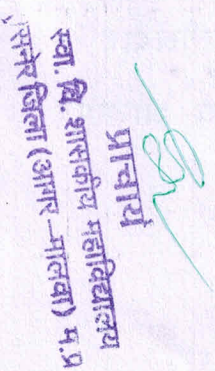 प्राचार्य
स्वा. वि. शासकीय महाविद्यालय
सुसनेर जिला (आगर-मालवा) म.प्र